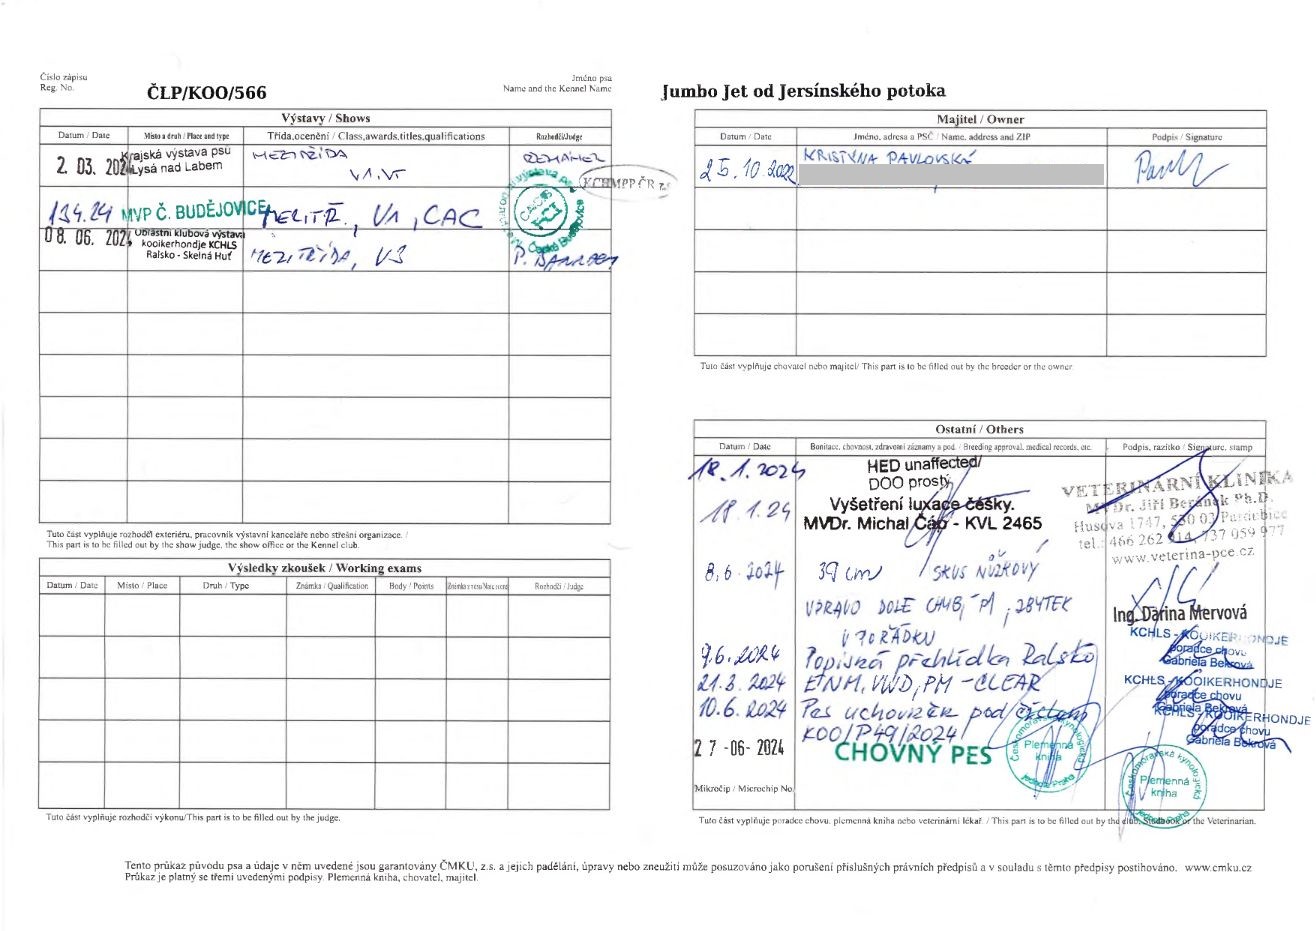 Číslo zápisu
Reg. No.
ČLP/KOO/566
Jméno psa
Name and the Kennel Name
Jumbo Jet od Jersínského potoka
Výstavy / Shows
Datum / Date
Místo a druh / Place and type
Třída,ocenění / Class,awards,titles,qualifications
Rozhodčí/Judge
2. 03. 2024
Krajská výstava psů
Lysá nad Labem
MEZITŘÍDA
V1.VT
KCHMPP ČR z.s
13.4.24
MVP Č. BUDĚJOVICE
MEZITŘ., V1, CAC
CACIB
FCI
České Budějovice
08. 06. 2024
Oblastní klubová výstava
kooikerhondje KCHLS
Ralsko - Skelná Huť
MEZITŘÍDA, V3
Tuto část vyplňuje rozhodčí exteriéru, pracovník výstavní kanceláře nebo střešní organizace. /
This part is to be filled out by the show judge, the show office or the Kennel club.
Výsledky zkoušek / Working exams
Datum / Date
Místo / Place
Druh / Type
Známka / Qualification
Body / Points
Rozhodčí / Judge
Tuto část vyplňuje rozhodčí výkonu/This part is to be filled out by the judge.
Majitel / Owner
Datum / Date
Jméno, adresa a PSČ / Name, address and ZIP
Podpis / Signature
25.10.2022
KRISTÝNA PAVLOVSKÁ
Tuto část vyplňuje chovatel nebo majitel/ This part is to be filled out by the breeder or the owner.
Ostatní / Others
Datum / Date
Bonitace, chovnost, zdravotní záznamy a pod. / Breeding approval, medical records, etc.
Podpis, razítko / Signature, stamp
18.1.2024
HED unaffected/
DOO prostý
18.1.24
Vyšetření luxace čéšky.
MVDr. Michal Čáp - KVL 2465
VETERINÁRNÍ KLINIKA
MVDr. Jiří Beránek Ph.D.
Husova 1747, 530 03 Pardubice
tel.: 466 262 914, 737 059 977
www.veterina-pce.cz
8.6.2024
39 cm / SKUS NŮŽKOVÝ
VPRAVO DOLE CHYBÍ P1, ZBYTEK
V POŘÁDKU
Ing. Darina Mervová
9.6.2024
Popisná přehlídka Ralsko
KCHLS - KOOIKERHONDJE
poradce chovu
Gabriela Bekrová
21.3.2024
ENM, VWD, PM - CLEAR
KCHLS - KOOIKERHONDJE
poradce chovu
Gabriela Bekrová
10.6.2024
Pes uchovněn pod číslem
KOO/P49/2024
KCHLS - KOOIKERHONDJE
poradce chovu
Gabriela Bekrová
27 -06- 2024
CHOVNÝ PES
Českomoravská kynologická
Plemenná
kniha
jednota Praha
Českomoravská kynologická
Plemenná
kniha
jednota Praha
Mikročip / Microchip No.
Tuto část vyplňuje poradce chovu, plemenná kniha nebo veterinární lékař. / This part is to be filled out by the club, Studbook or the Veterinarian.
Tento průkaz původu psa a údaje v něm uvedené jsou garantovány ČMKU, z.s. a jejich padělání, úpravy nebo zneužití může posuzováno jako porušení příslušných právních předpisů a v souladu s těmto předpisy postihováno. www.cmku.cz
Průkaz je platný se třemi uvedenými podpisy. Plemenná kniha, chovatel, majitel.